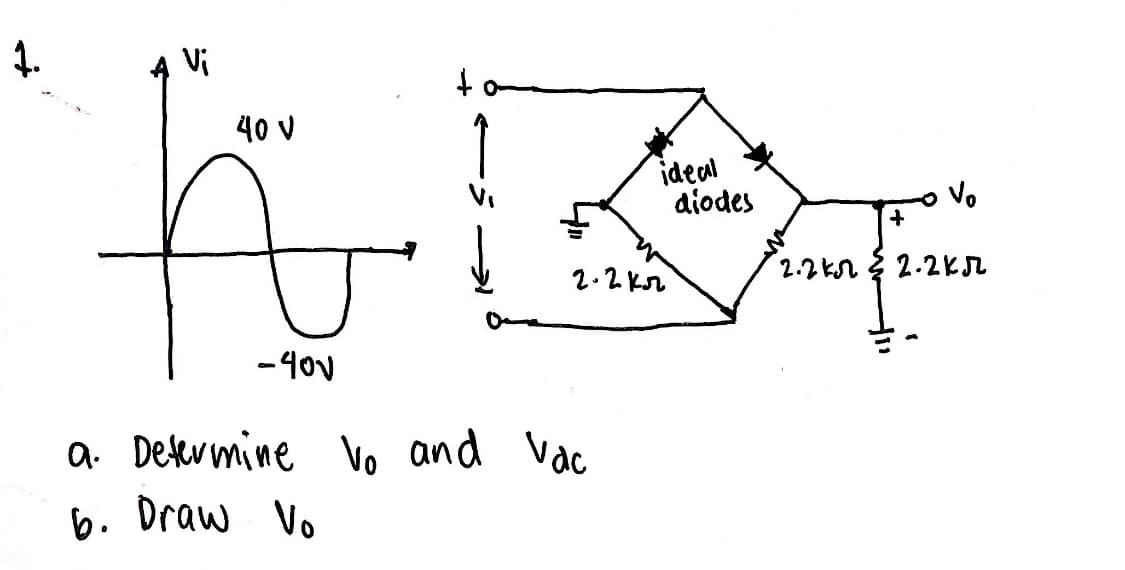 1.
Vi
40 V
-40V
+
Vi
ideal
diodes
2.2 kΩ
2.2kΩ
2.2KΩ
Vo
+
-
a. Determine Vo and Vdc
b. Draw Vo